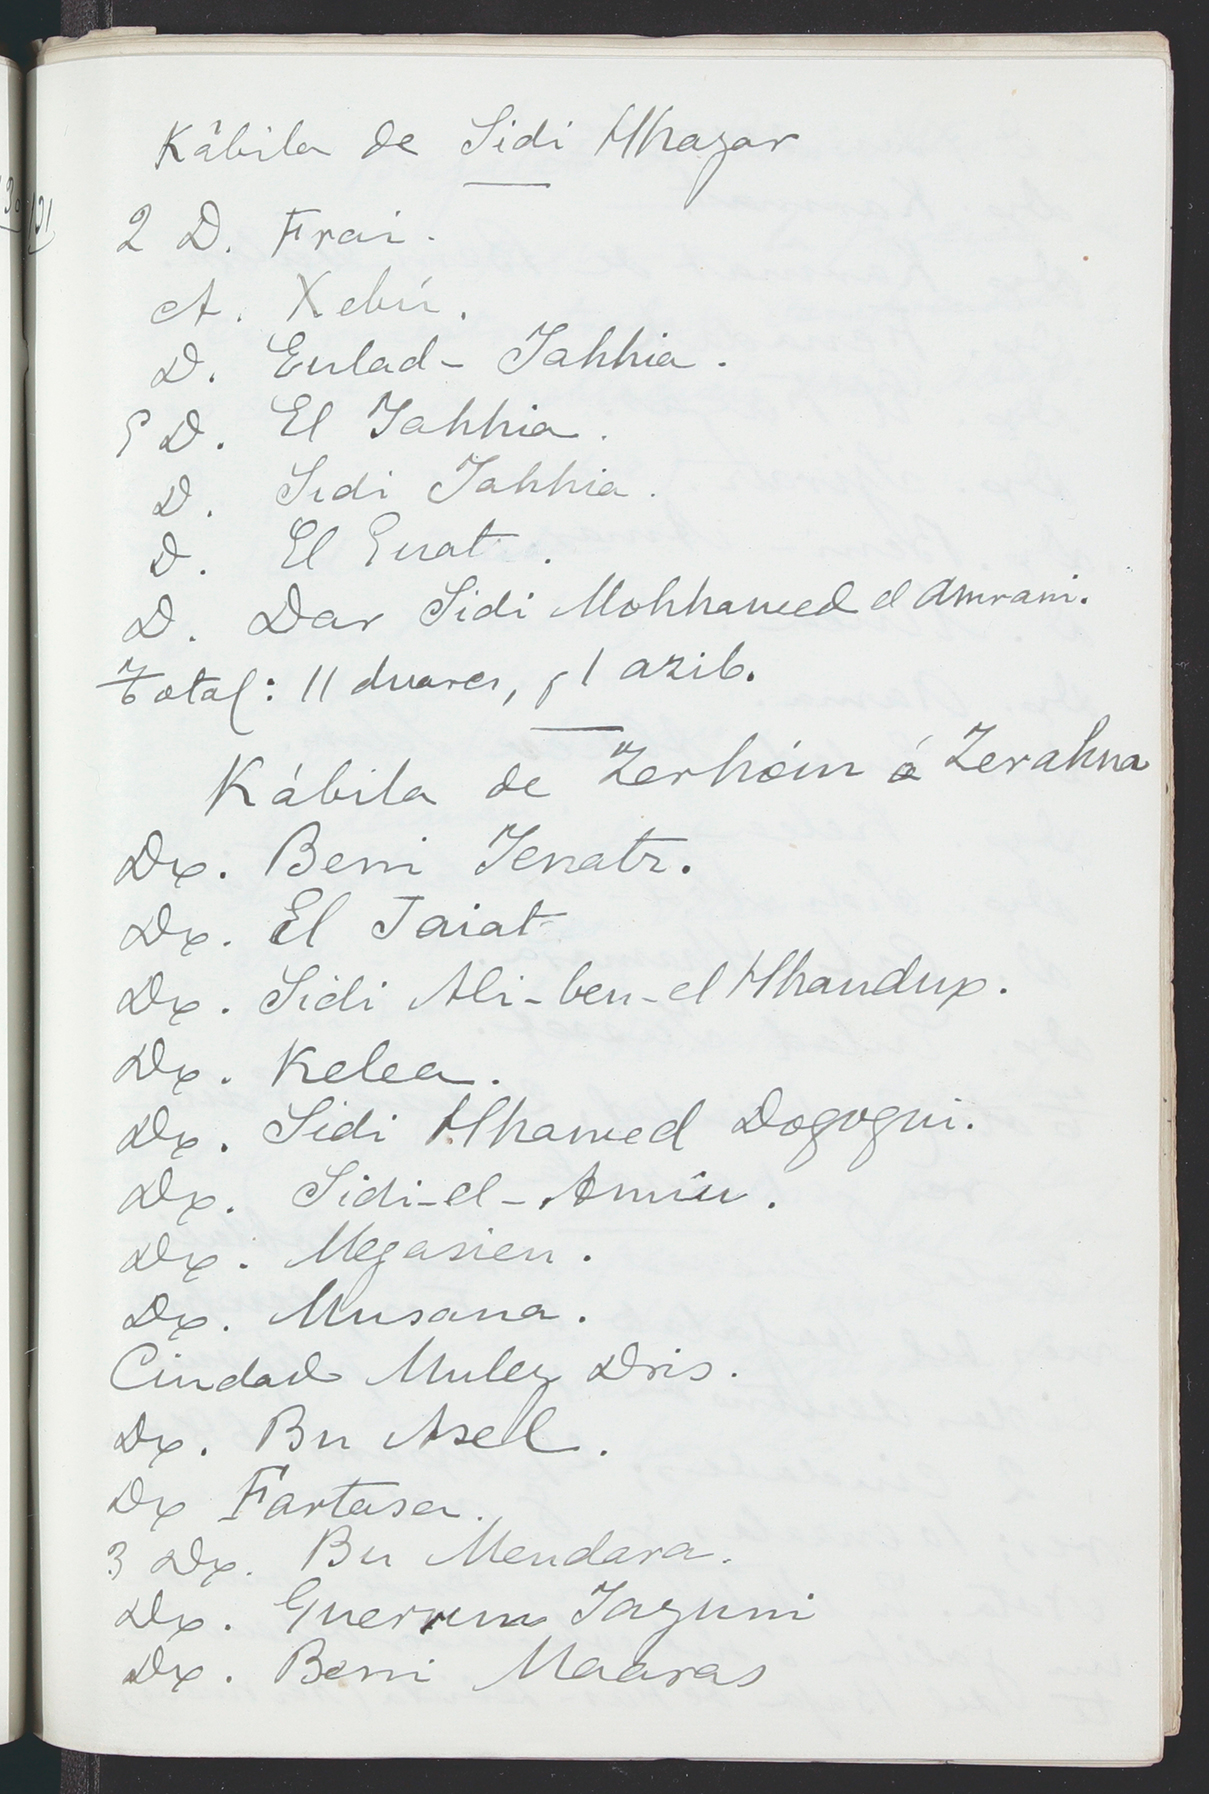 Kábila de Sidi Hhazar
2 D. Frai.
A. Xebú.
D. Eulad- Jahhia.
5 D. El Jahhia.
D. Sidi Jahhia.
D. El Guat.
D. Dar Sidi Mohhamed el Amrani.
Total: 11 duares, y 1 azib.
Kábila de Zerhóun ó Zerahna
Dx. Beni Jenatz.
Dx. El Taiat
Dx. Sidi Ali-ben-el Hhandux.
Dx. Kelea.
Dx. Sidi Hhamed Dogogui.
Dx. Sidi-el-Amín.
Dx. Megasien.
Dx. Musana.
Ciudad Muley Dris.
Dx. Bu Asel.
Dx Fartasa.
3 Dx. Bu Mendara.
Dx. Jazuni
Dx. Beni Maaras
101